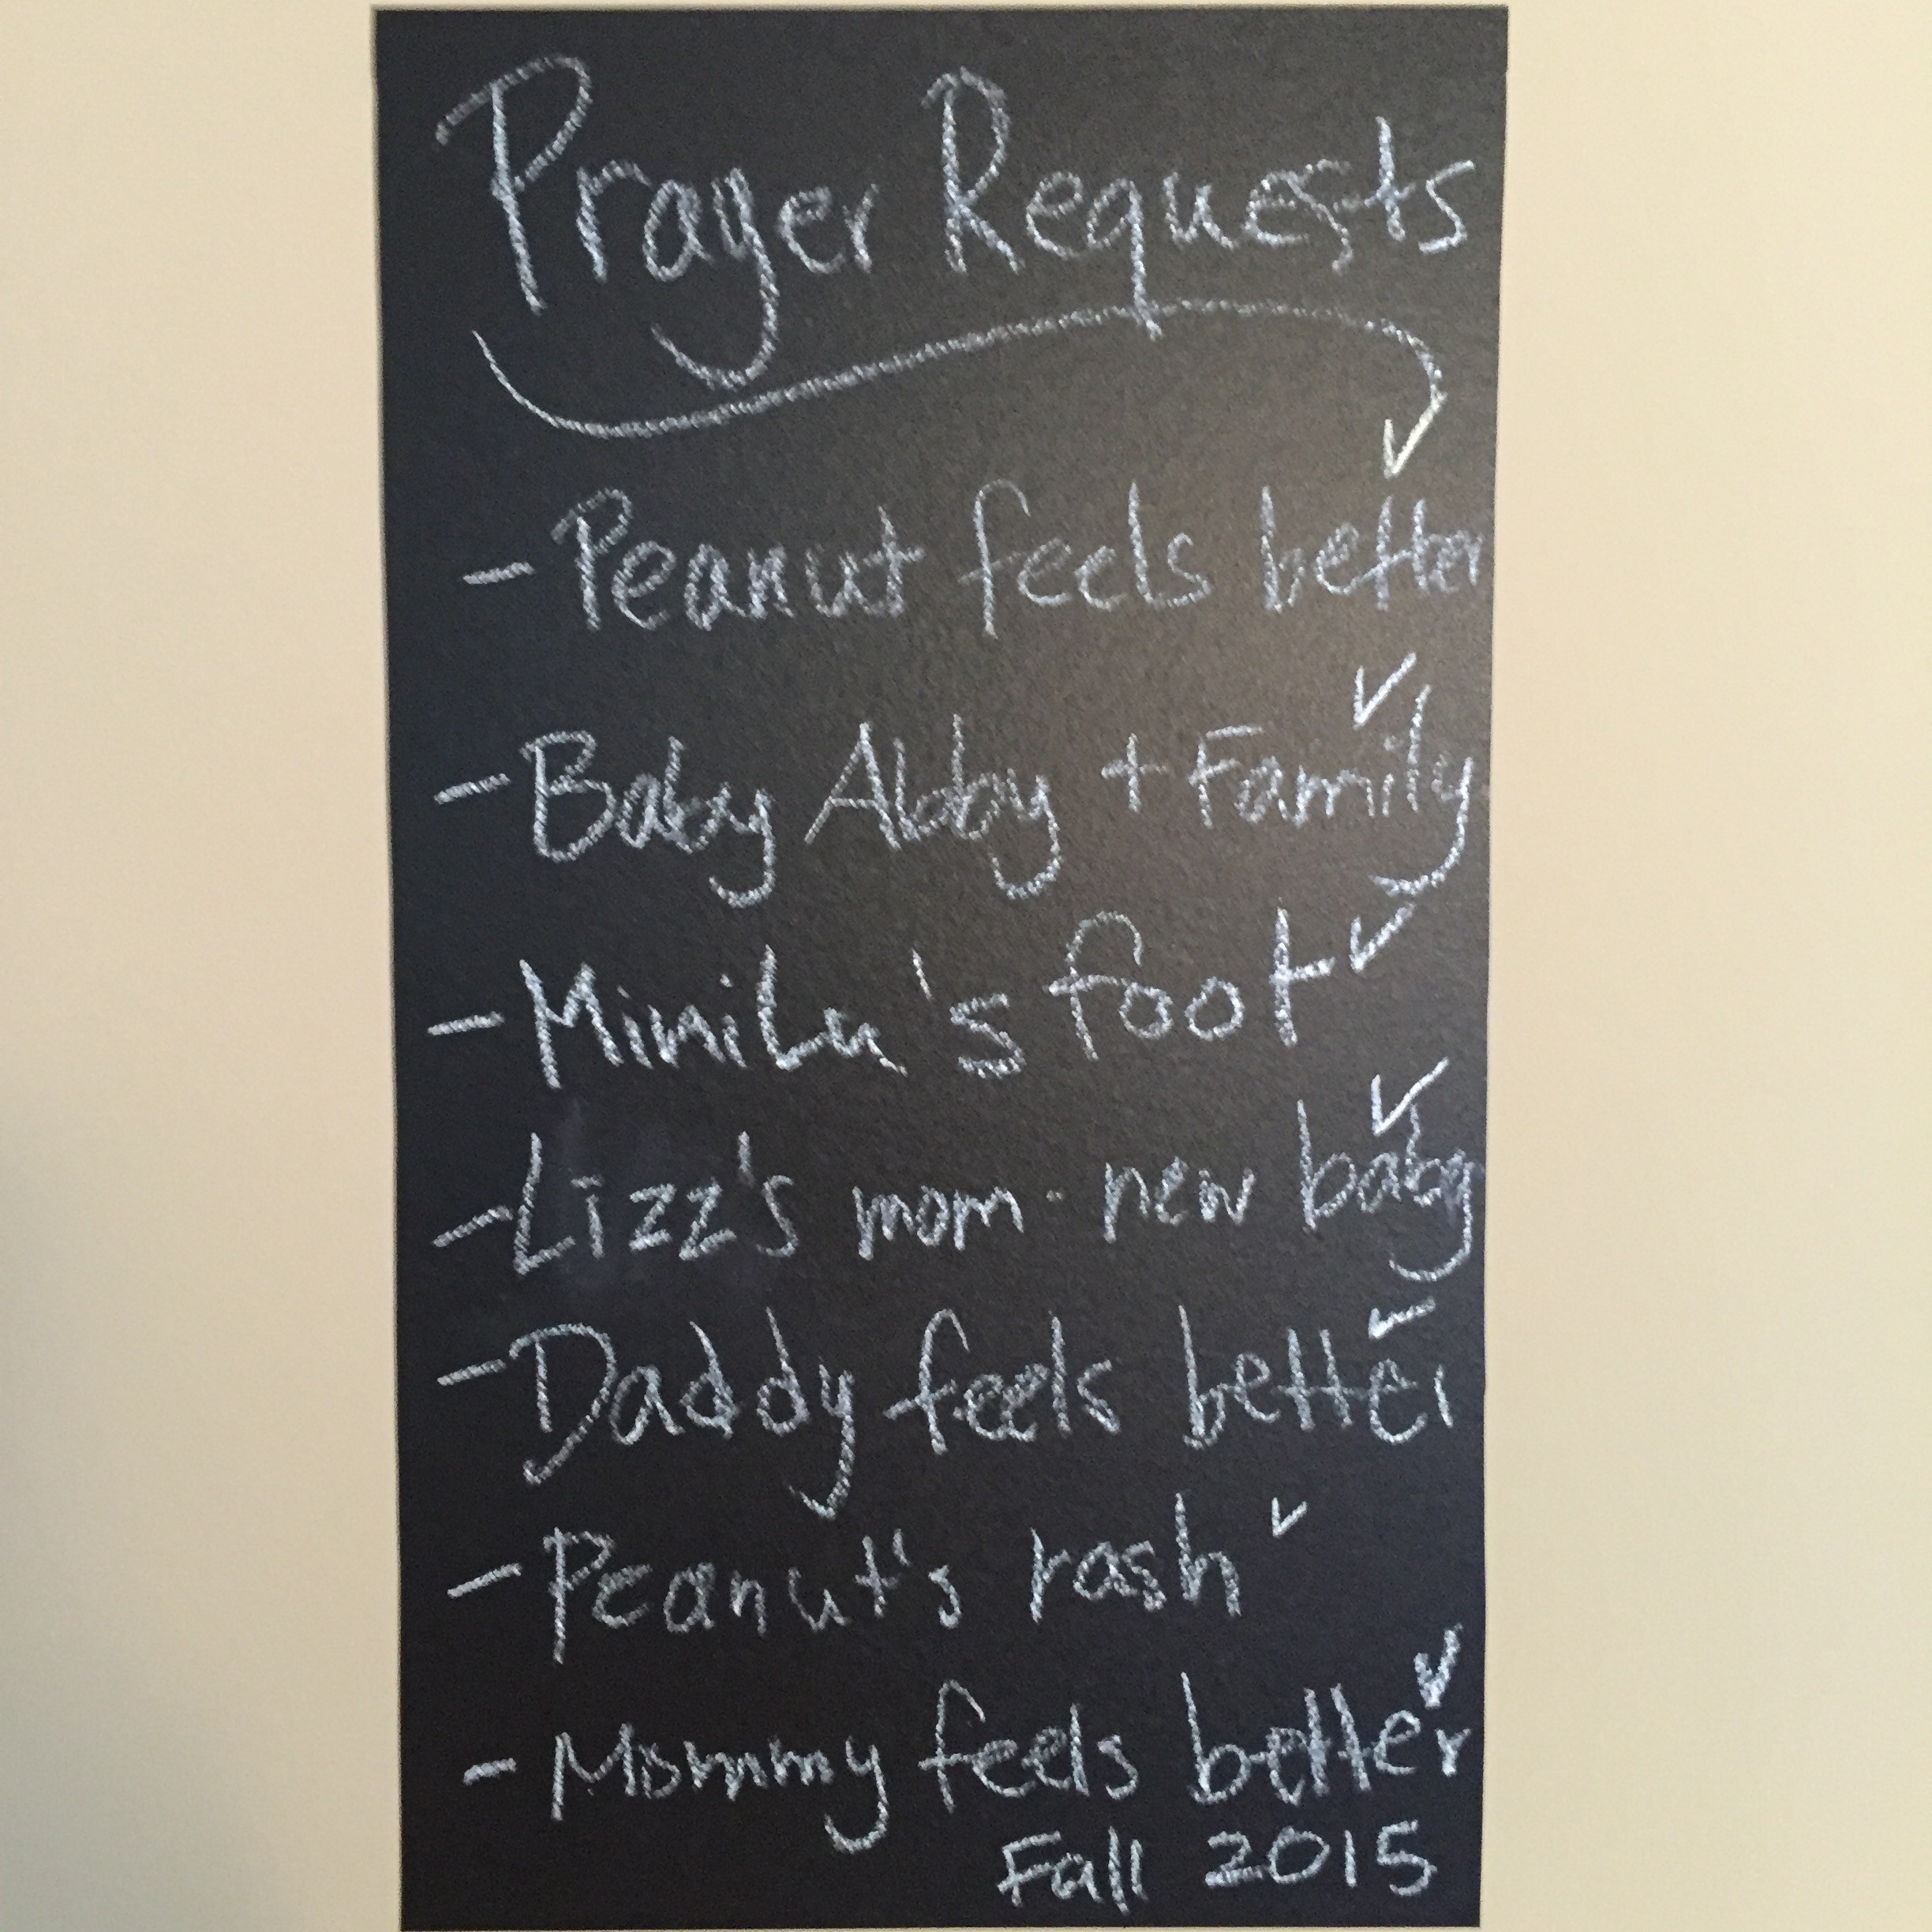 Prayer Requests
- Peanut feels better ✓
- Baby Abby + Family ✓
- MiniLu's foot ✓
- Lizz's mom - new baby ✓
- Daddy feels better ✓
- Peanut's rash ✓
- Mommy feels better ✓
Fall 2015